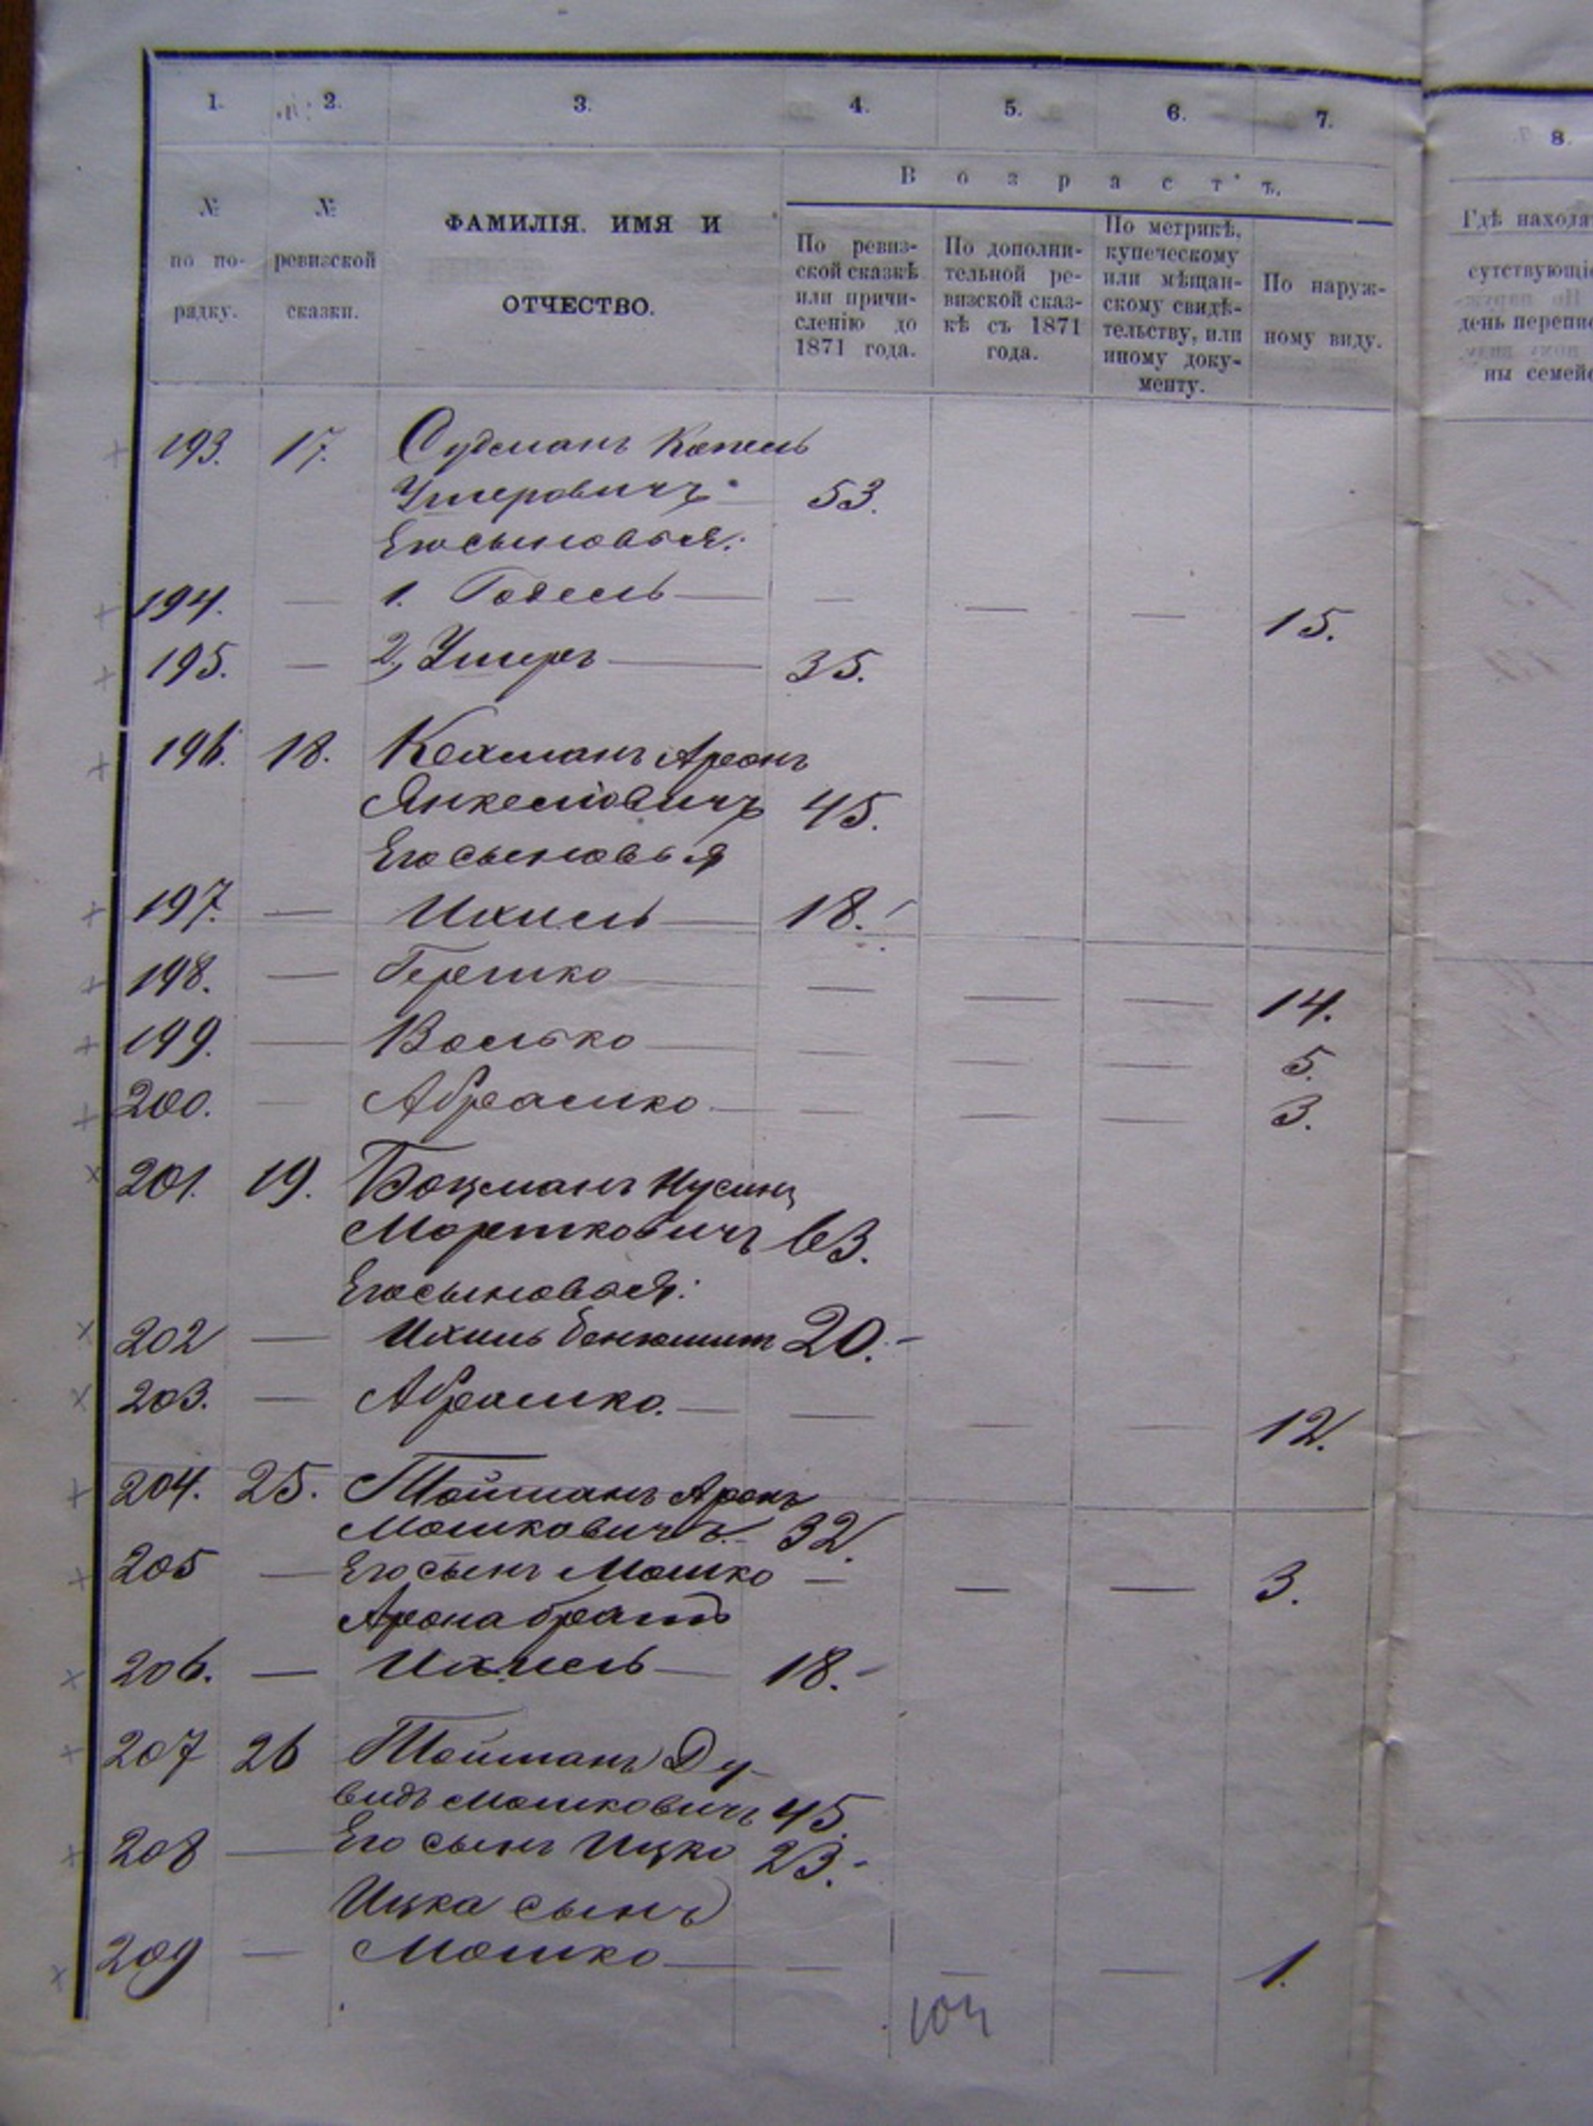 1. 2. 3. 4. 5. 6. 7. 8.
Возрастъ.
№ по по-рядку.
№ ревизской сказки.
ФАМИЛІЯ. ИМЯ И
ОТЧЕСТВО.
По ревиз-
ской сказкѣ
или причи-
сленію до
1871 года.
По дополни-
тельной ре-
визской сказ-
кѣ съ 1871
года.
По метрикѣ,
купеческому
или мѣщан-
скому свидѣ-
тельству, или
иному доку-
менту.
По наруж-
ному виду.
Гдѣ находя
сутствующі
день перепи
ны семей
193. 17. Судманъ Копель
Ушеровичъ 53.
Его сыновья:
194. — 1. Годель — — — — 15.
195. — 2, Ушеръ — 35.
196. 18. Кахманъ Аронъ
Янкелiовичъ 45.
Его сыновья
197. — Ихиель — 18.
198. — Гершко — — — — 14.
199. — Волько — — — — 5.
200. — Абрамко — — — — 3.
201. 19. Боцманъ Нусинъ
Мортковичъ 63.
Его сыновья:
202 — Ихиль Бенюмин 20.
203. — Абрамко. — — — — 12.
204. 25. Тойтманъ Аронъ
Мошковичъ. 32.
205 — Его сынъ Мошко — — — 3.
Арона братъ
206. — Ихиель — 18.
207 26 Тойтманъ Ду-
видъ Мошковичъ 45.
208 — Его сынъ Ицко 23.
Ицка сынъ
209 — Мошко — — — — 1.
104